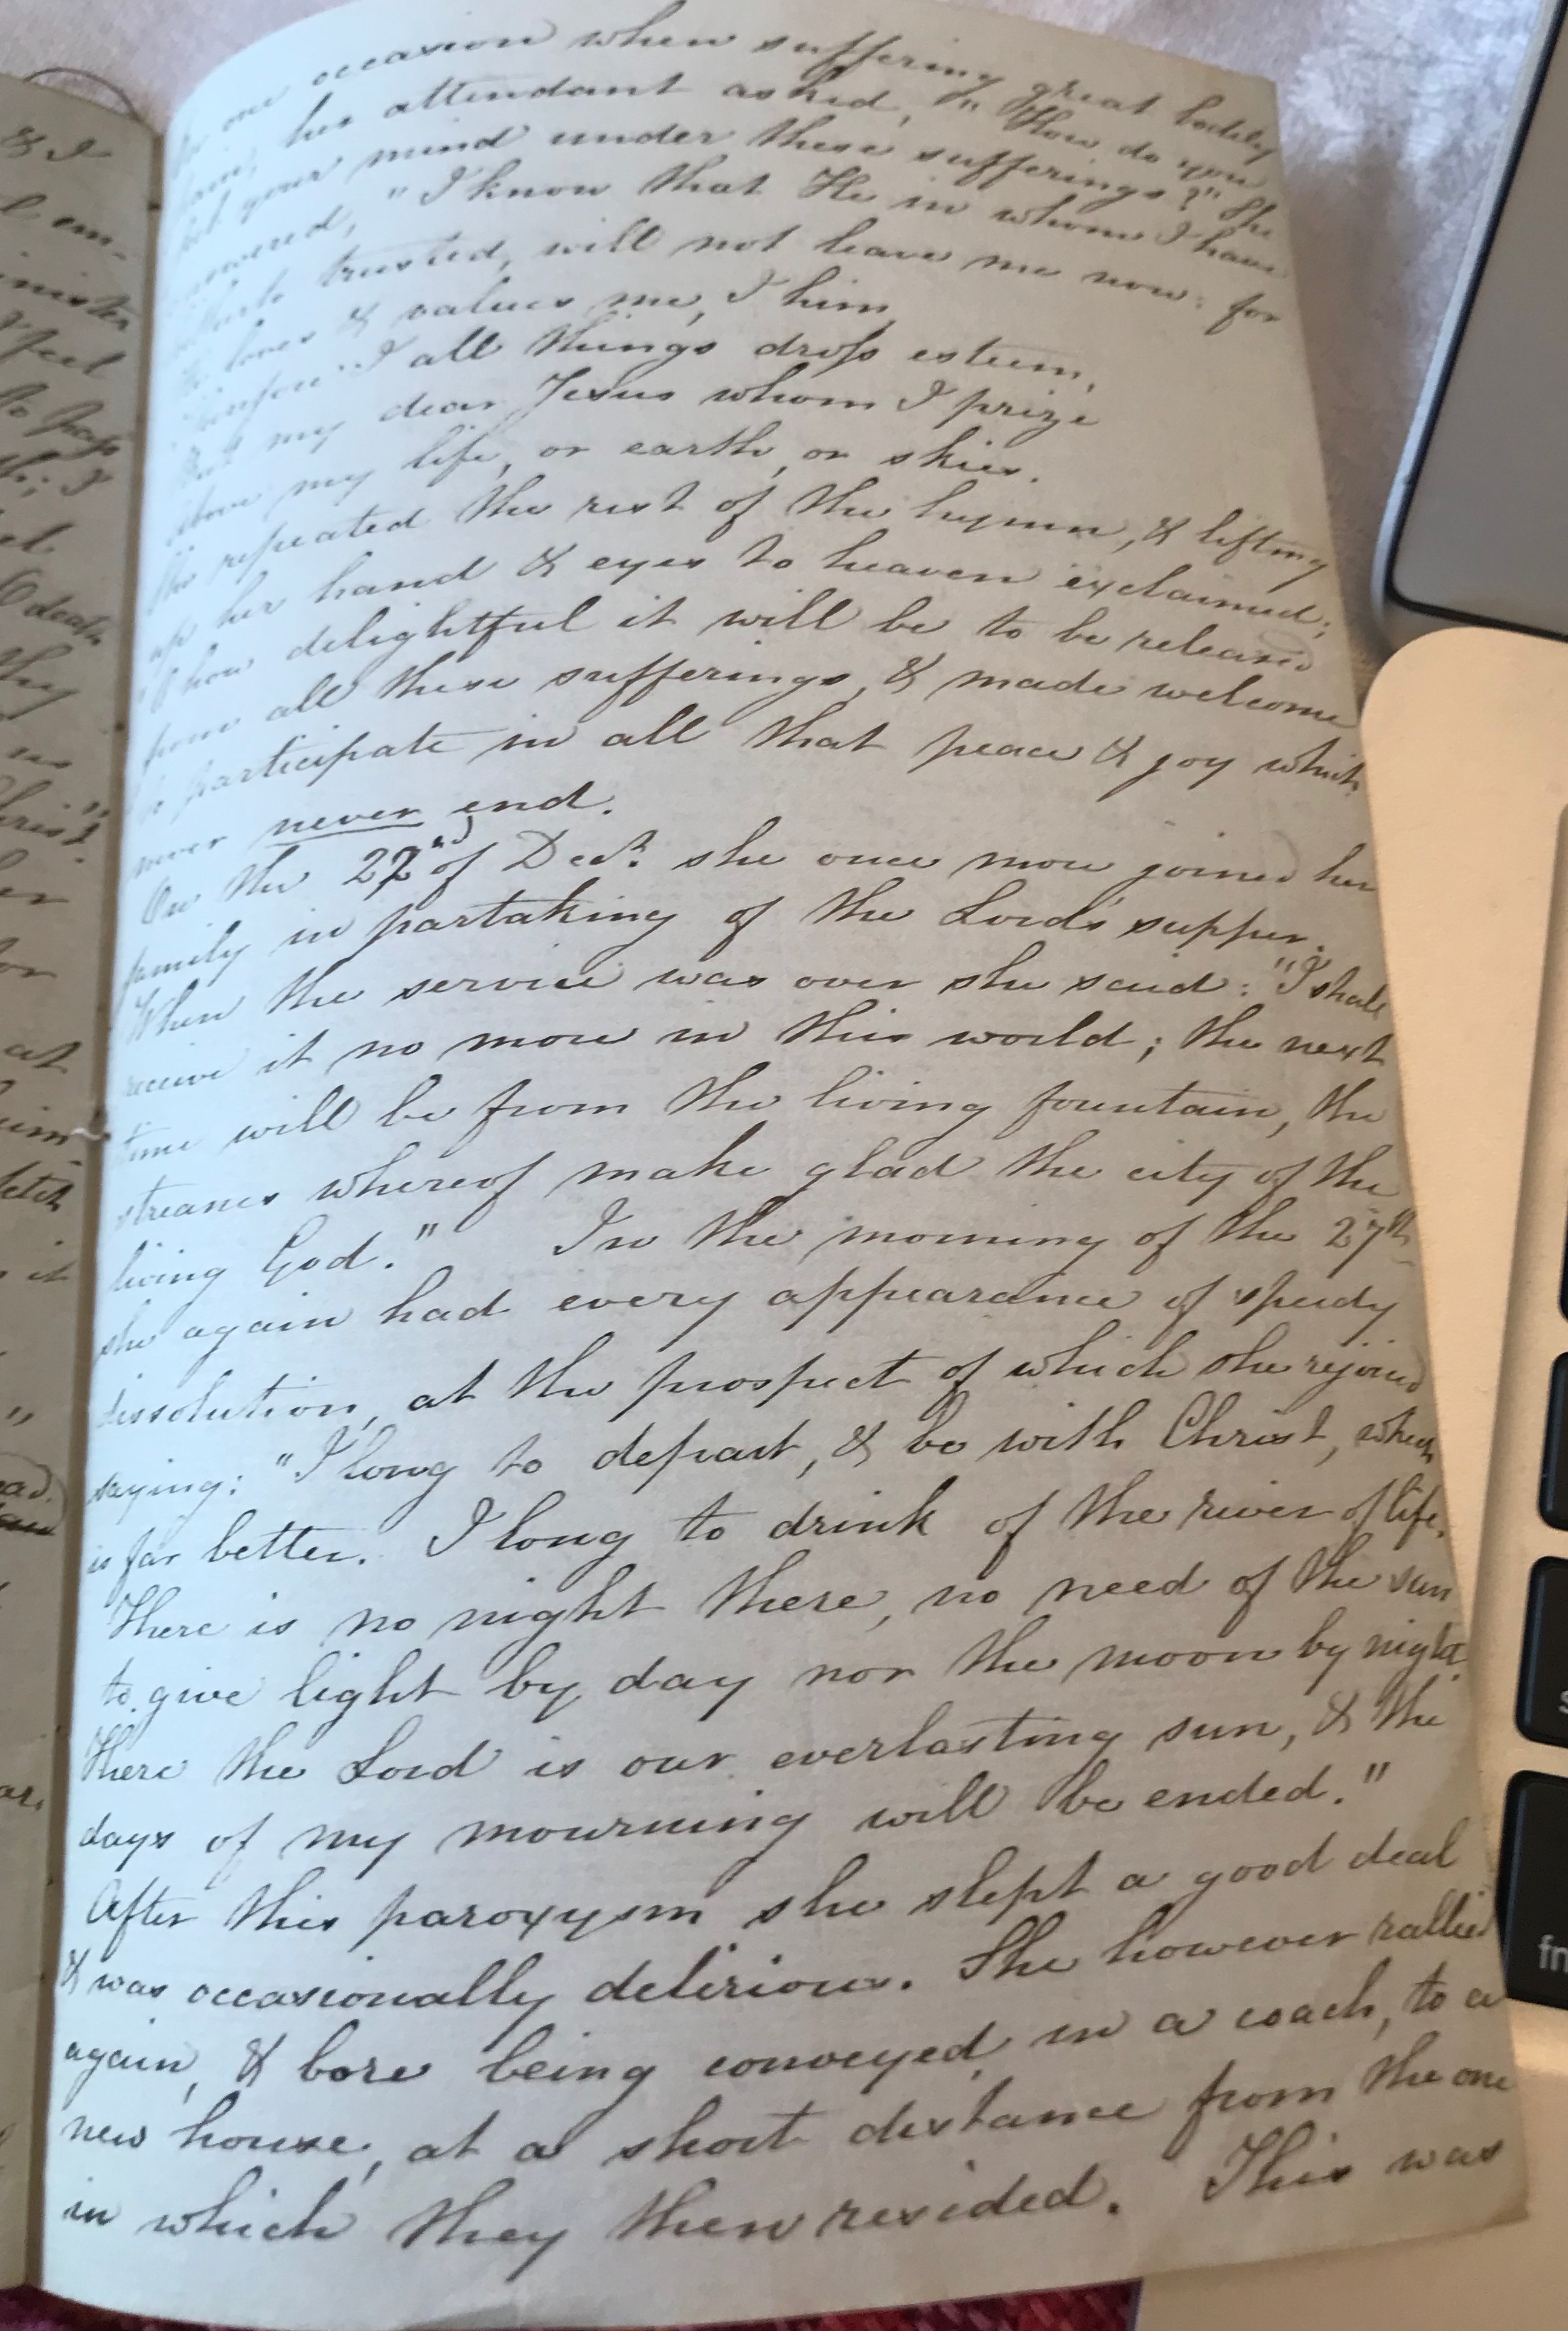 & I
l em-
inister
I feel
to pass
th; I
O death
thy
us
Christ."
er
for
at
fetch
it
"
one occasion when suffering great bodily
her attendant asked, "How do you
your mind under these sufferings?" She
"I know that He in whom I have
trusted, will not leave me now: for
loves & values me, I him,
I all things dross esteem,
my dear Jesus whom I prize
Above my life, or earth, or skies.
She repeated the rest of the hymn, & lifting
up her hand & eyes to heaven exclaimed;
how delightful it will be to be released
from all these sufferings, & made welcome
to participate in all that peace & joy which
never never end.
On the 22nd of Decr. she once more joined her
family in partaking of the Lord's supper.
When the service was over she said: "I shall
receive it no more in this world; the next
time will be from the living fountain, the
streams whereof make glad the city of the
living God." In the morning of the 27th
she again had every appearance of speedy
dissolution, at the prospect of which she rejoiced
saying: "I long to depart, & be with Christ, which
is far better. I long to drink of the river of life.
There is no night there, no need of the sun
to give light by day nor the moon by night.
There the Lord is our everlasting sun, & the
days of my mourning will be ended."
After this paroxysm she slept a good deal
& was occasionally delirious. She however rallied
again, & bore being conveyed in a coach, to a
new house, at a short distance from the one
in which they then resided. This was
fn